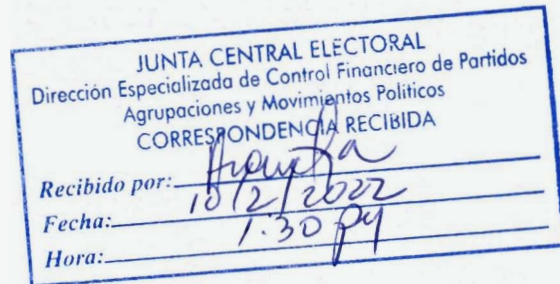 JUNTA CENTRAL ELECTORAL
Dirección Especializada de Control Financiero de Partidos
Agrupaciones y Movimientos Politicos
CORRESPONDENCIA RECIBIDA
Recibido por:
Fecha: 10/2/2022
Hora: 1:30 py